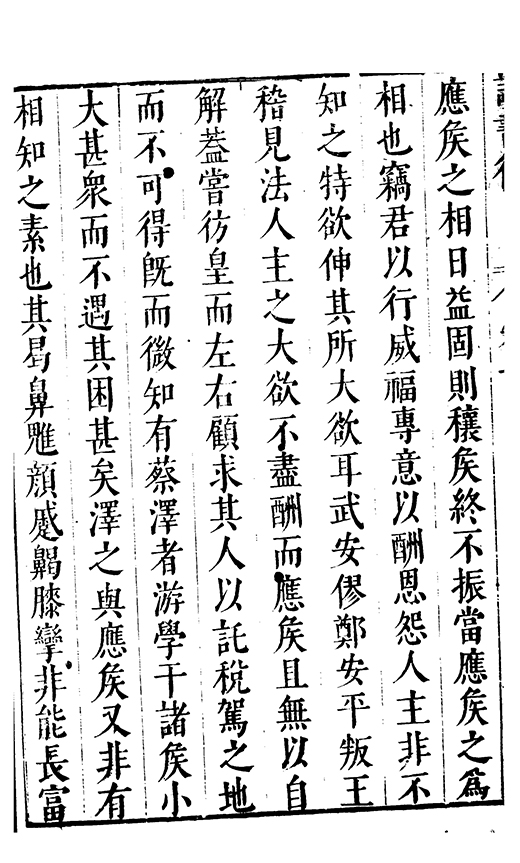 應矦之相日益固則穰矦終不振當應矦之爲
相也竊君以行威福專意以酬恩怨人主非不
知之特欲伸其所大欲耳武安僇鄭安平叛王
稽見法人主之大欲不盡酬而應矦且無以自
解蓋嘗彷皇而左右顧求其人以託稅駕之地
而不可得旣而微知有蔡澤者游學干諸矦小
大甚衆而不遇其困甚矣澤之與應矦又非有
相知之素也其曷鼻雕顏蹙齃膝攣非能長富